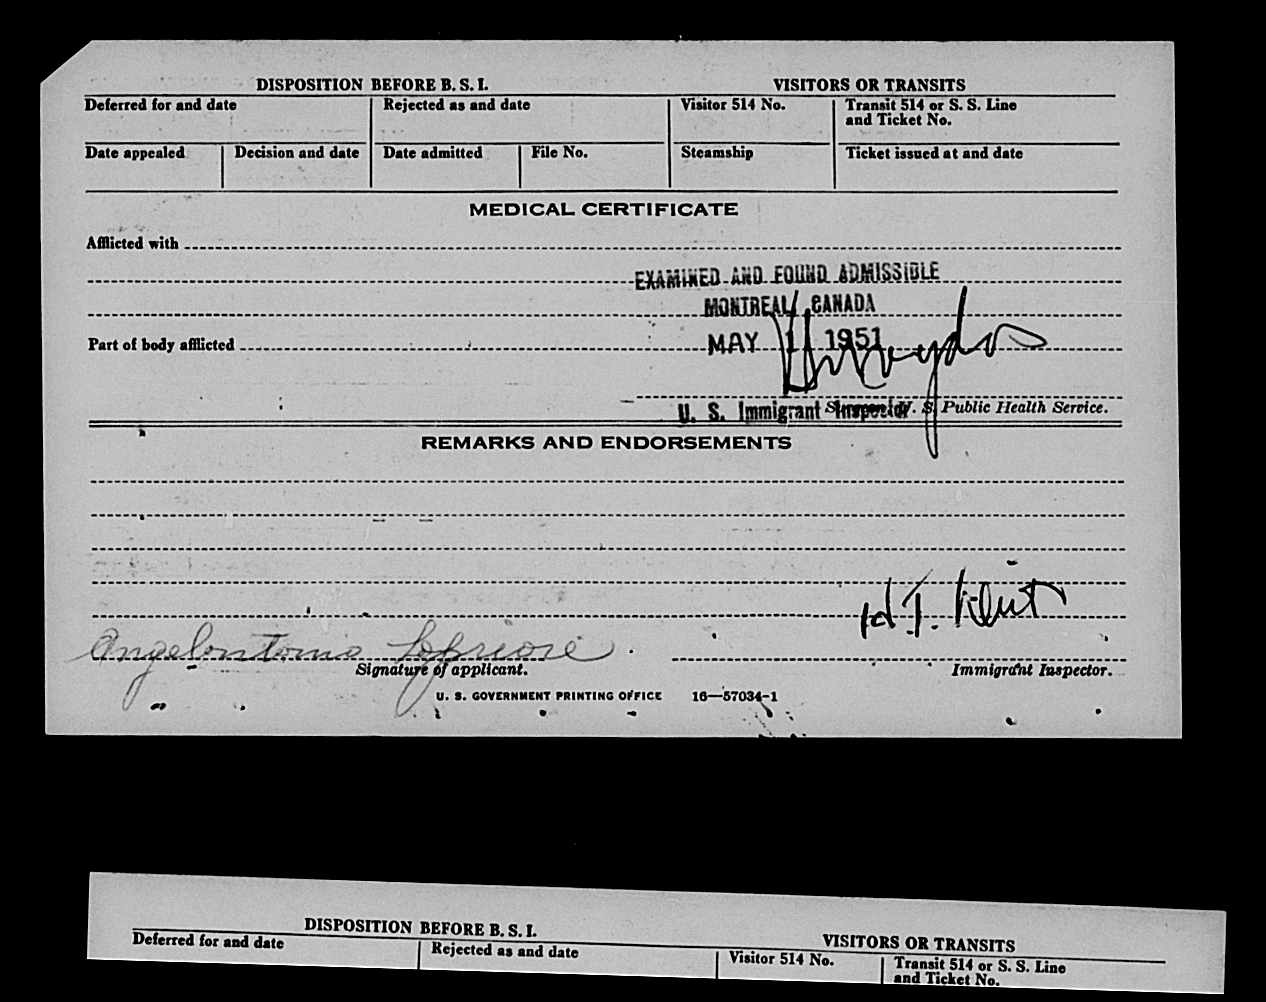 DISPOSITION BEFORE B. S. I. VISITORS OR TRANSITS
Deferred for and date Rejected as and date Visitor 514 No. Transit 514 or S. S. Line
and Ticket No.
Date appealed Decision and date Date admitted File No. Steamship Ticket issued at and date
MEDICAL CERTIFICATE
Afflicted with
EXAMINED AND FOUND ADMISSIBLE
MONTREAL, CANADA
Part of body afflicted MAY 1 1951
U. S. Immigrant Inspector U. S. Public Health Service.
REMARKS AND ENDORSEMENTS
H. T.
Angelantonio Lopriore
Signature of applicant. Immigrant Inspector.
U. S. GOVERNMENT PRINTING OFFICE 16—57034-1
DISPOSITION BEFORE B. S. I. VISITORS OR TRANSITS
Deferred for and date Rejected as and date Visitor 514 No. Transit 514 or S. S. Line
and Ticket No.